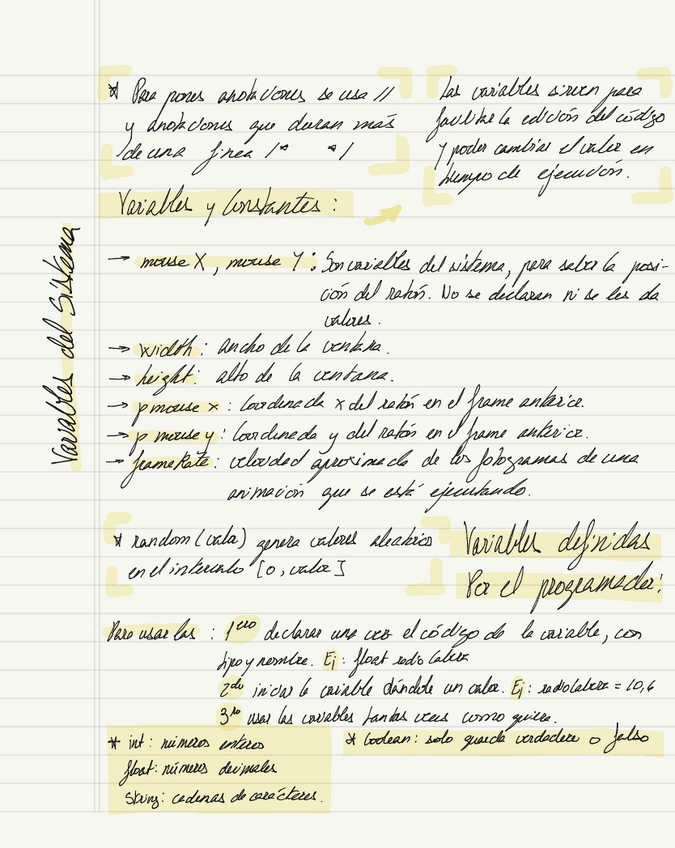 * Para poner anotaciones se usa //
y anotaciones que duran más
de una línea /* */
Las variables sirven para
facilitar la edición del código
y poder cambiar el valor en
tiempo de ejecución.
Variables y Constantes:
Variables del Sistema
→ mouse X, mouse Y: Son variables del sistema, para saber la posi-
ción del ratón. No se declaran ni se les da
valores.
→ width: ancho de la ventana.
→ height: alto de la ventana.
→ pmouse x: Coordenada x del ratón en el frame anterior.
→ pmouse y: Coordenada y del ratón en el frame anterior.
→ frameRate: velocidad aproximada de los fotogramas de una
animación que se está ejecutando.
* random (valor) genera valores aleatorios
en el intervalo [0, valor]
Variables definidas
Por el programador:
Para usar las: 1ero declarar una vez el código de la variable, con
tipo y nombre. Ej: float radioCabeza
2do iniciar la variable dándole un valor. Ej: radioCabeza = 10,6
3ro usar las variables tantas veces como quiera.
* int: números enteros
float: números decimales
String: cadenas de carácteres.
* boolean: solo guarda verdadero o falso